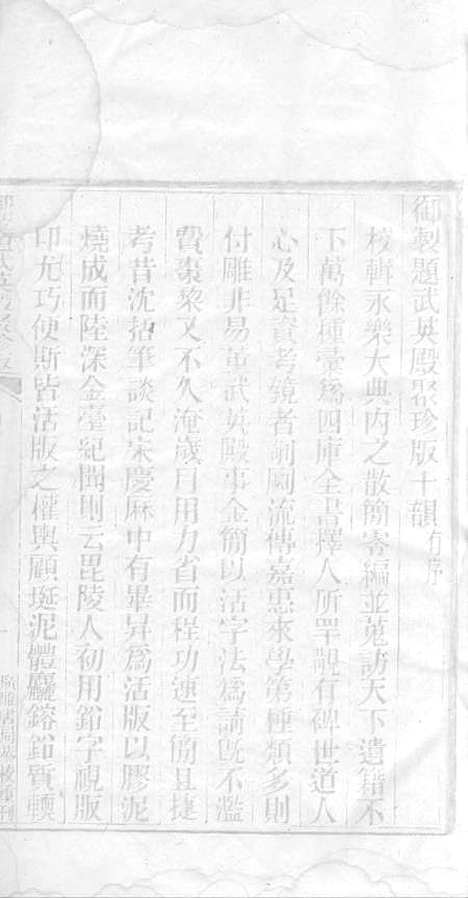 御製題武英殿聚珍版十韻有序
校輯永樂大典內之散簡零編並蒐訪天下遺籍不
下萬餘種彙為四庫全書擇人所罕覯有裨世道人
心及足資考鏡者剞劂流傳嘉惠來學第種類多則
付雕非易董武英殿事金簡以活字法為請既不濫
費棗棃又不久淹歲月用力省而程功速至簡且捷
考昔沈括筆談記宋慶厤中有畢昇為活版以膠泥
燒成而陸深金臺紀聞則云毘陵人初用鉛字視版
印尤巧便斯皆活版之權輿顧埏泥體麤鎔鉛質輭